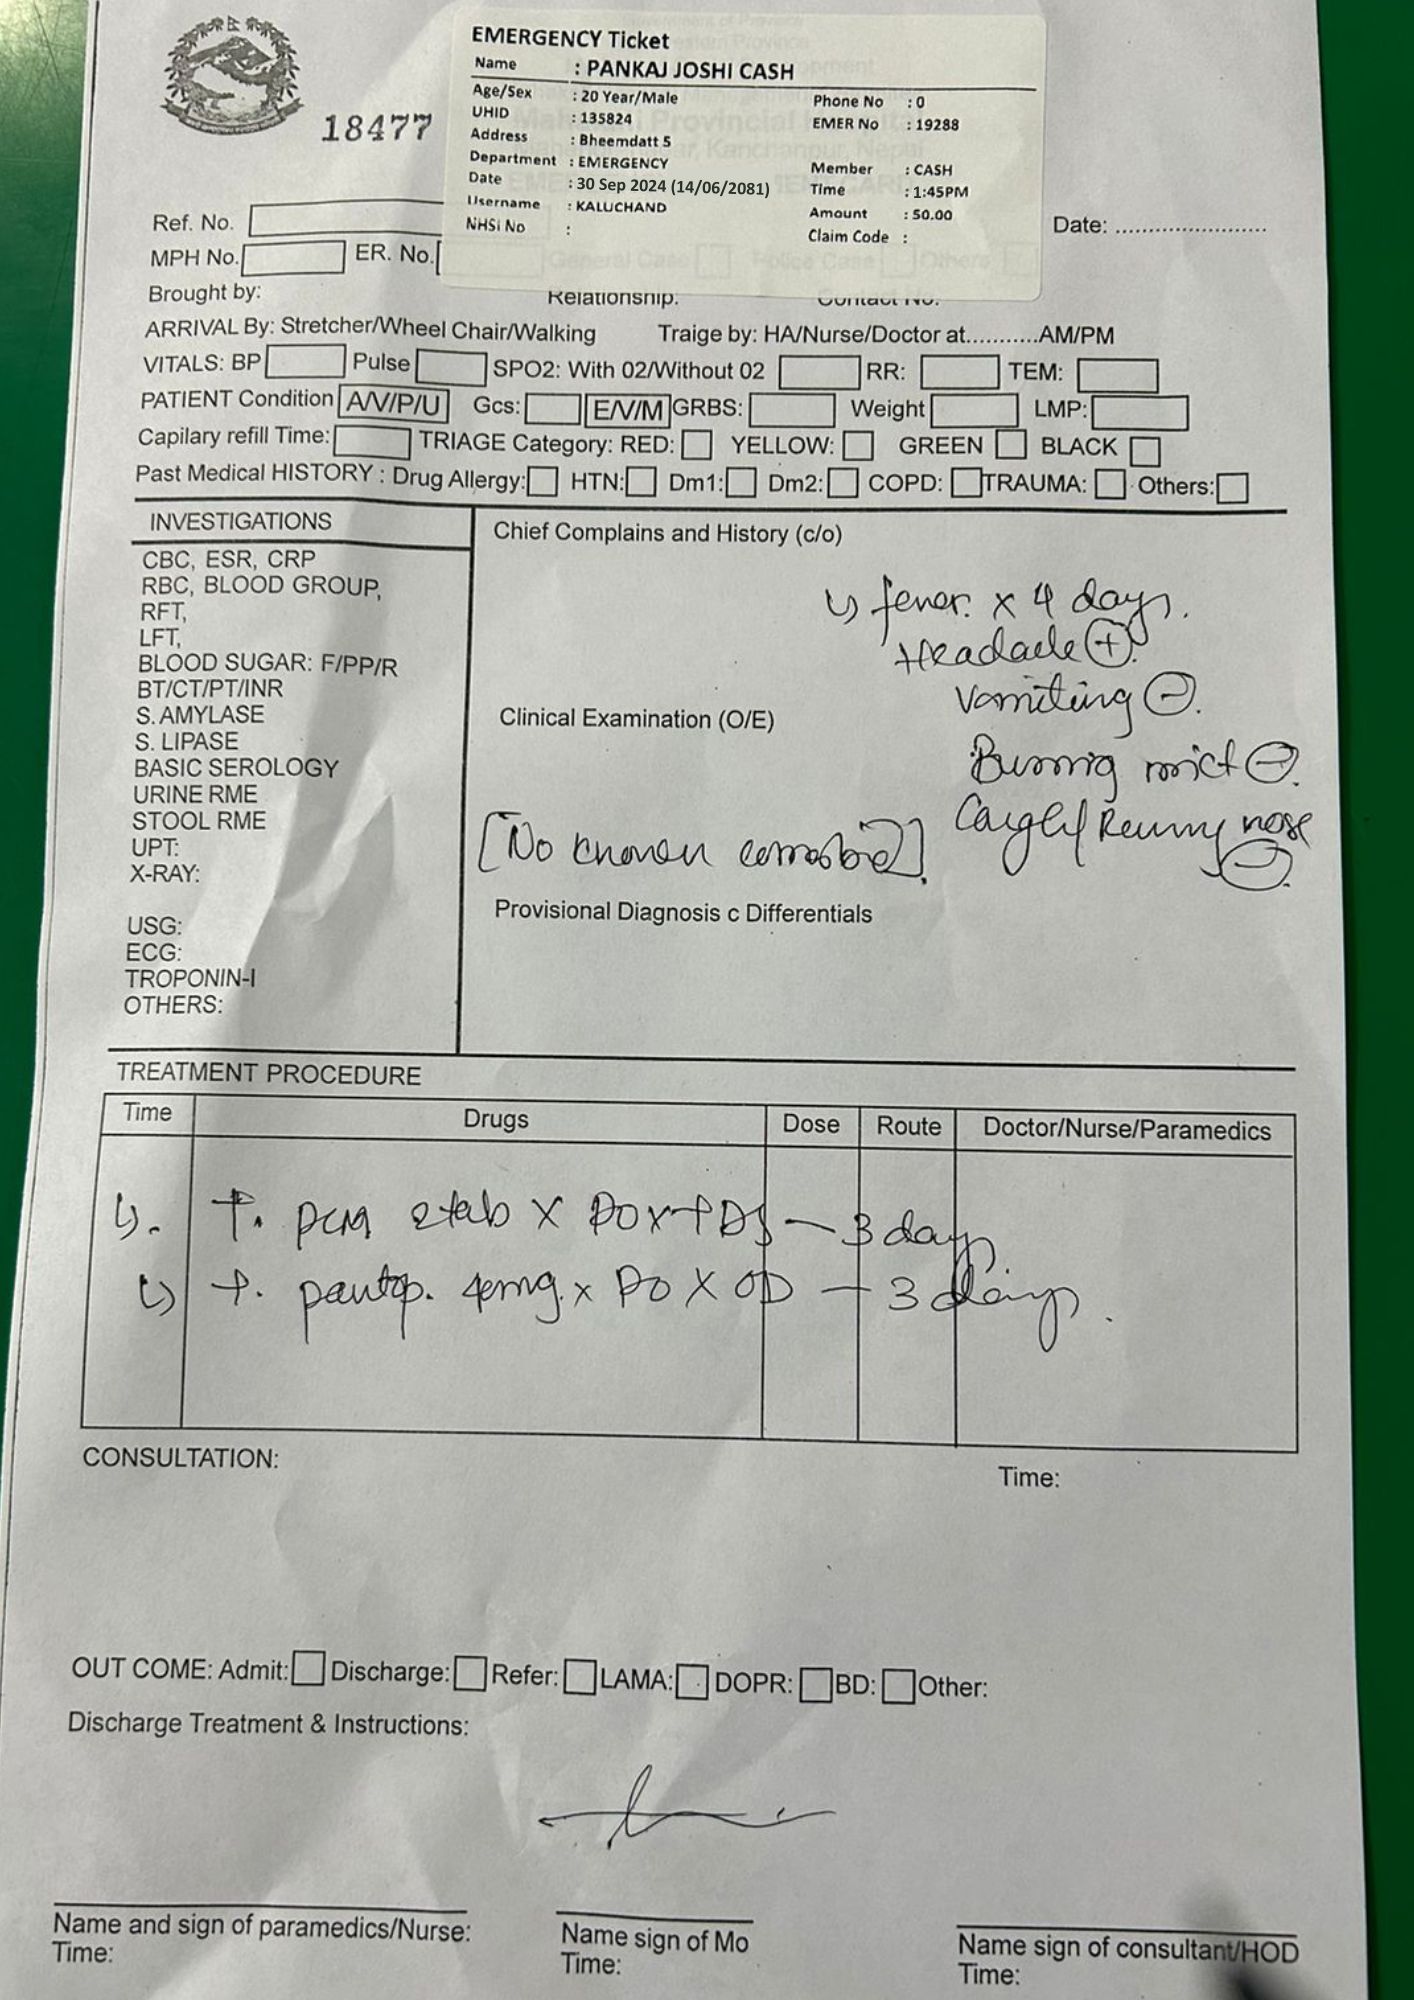 EMERGENCY Ticket
Name : PANKAJ JOSHI CASH
Age/Sex : 20 Year/Male Phone No : 0
UHID : 135824 EMER No : 19288
Address : Bheemdatt 5
Department : EMERGENCY Member : CASH
Date : 30 Sep 2024 (14/06/2081) Time : 1:45PM
Username : KALUCHAND Amount : 50.00
NHSI No : Claim Code :
18477
Ref. No. Date: ........................
MPH No. ER. No. General Case Police Case Others
Brought by: Relationship: Contact No.
ARRIVAL By: Stretcher/Wheel Chair/Walking Traige by: HA/Nurse/Doctor at...........AM/PM
VITALS: BP Pulse SPO2: With 02/Without 02 RR: TEM:
PATIENT Condition A/V/P/U Gcs: E/V/M GRBS: Weight LMP:
Capilary refill Time: TRIAGE Category: RED: YELLOW: GREEN BLACK
Past Medical HISTORY : Drug Allergy: HTN: Dm1: Dm2: COPD: TRAUMA: Others:
INVESTIGATIONS
CBC, ESR, CRP
RBC, BLOOD GROUP,
RFT,
LFT,
BLOOD SUGAR: F/PP/R
BT/CT/PT/INR
S. AMYLASE
S. LIPASE
BASIC SEROLOGY
URINE RME
STOOL RME
UPT:
X-RAY:
USG:
ECG:
TROPONIN-I
OTHERS:
Chief Complains and History (c/o)
fever. x 4 days.
Headache (+).
Vomiting (-).
Clinical Examination (O/E)
Burning mict (-).
Cough/Runny nose
(-).
[No known comorbid].
Provisional Diagnosis c Differentials
TREATMENT PROCEDURE
Time Drugs Dose Route Doctor/Nurse/Paramedics
T. PCM 2tab x PO x TDS — 3 days
T. pantop. 40mg. x PO x OD — 3 days.
CONSULTATION:
Time:
OUT COME: Admit: Discharge: Refer: LAMA: DOPR: BD: Other:
Discharge Treatment & Instructions:
Name and sign of paramedics/Nurse:
Time:
Name sign of Mo
Time:
Name sign of consultant/HOD
Time: